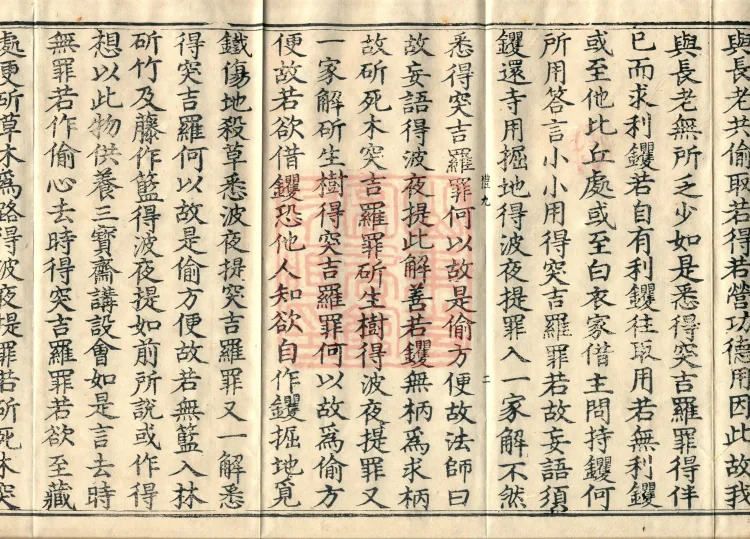 與長老共偷取若得若營功德用因此故我
與長老無所乏少如是悉得突吉羅罪得伴
已而求利钁若自有利钁往取用若無利钁
或至他比丘處或至白衣家借主問持钁何
所用答言小小用得突吉羅罪若故妄語須
钁還寺用掘地得波夜提罪入一家解不然
禮九
二
悉得突吉羅罪何以故是偷方便故法師曰
故妄語得波夜提此解善若钁無柄爲求柄
故斫死木突吉羅罪斫生樹得波夜提罪又
一家解斫生樹得突吉羅罪何以故爲偷方
便故若欲借钁恐他人知欲自作钁掘地覓
鐵傷地殺草悉波夜提突吉羅罪又一解悉
得突吉羅何以故是偷方便故若無籃入林
斫竹及藤作籃得波夜提如前所說或作得
想以此物供養三寶齋講設會如是言去時
無罪若作偷心去時得突吉羅罪若欲至藏
處更斫草木爲路得波夜提罪若斫死木突